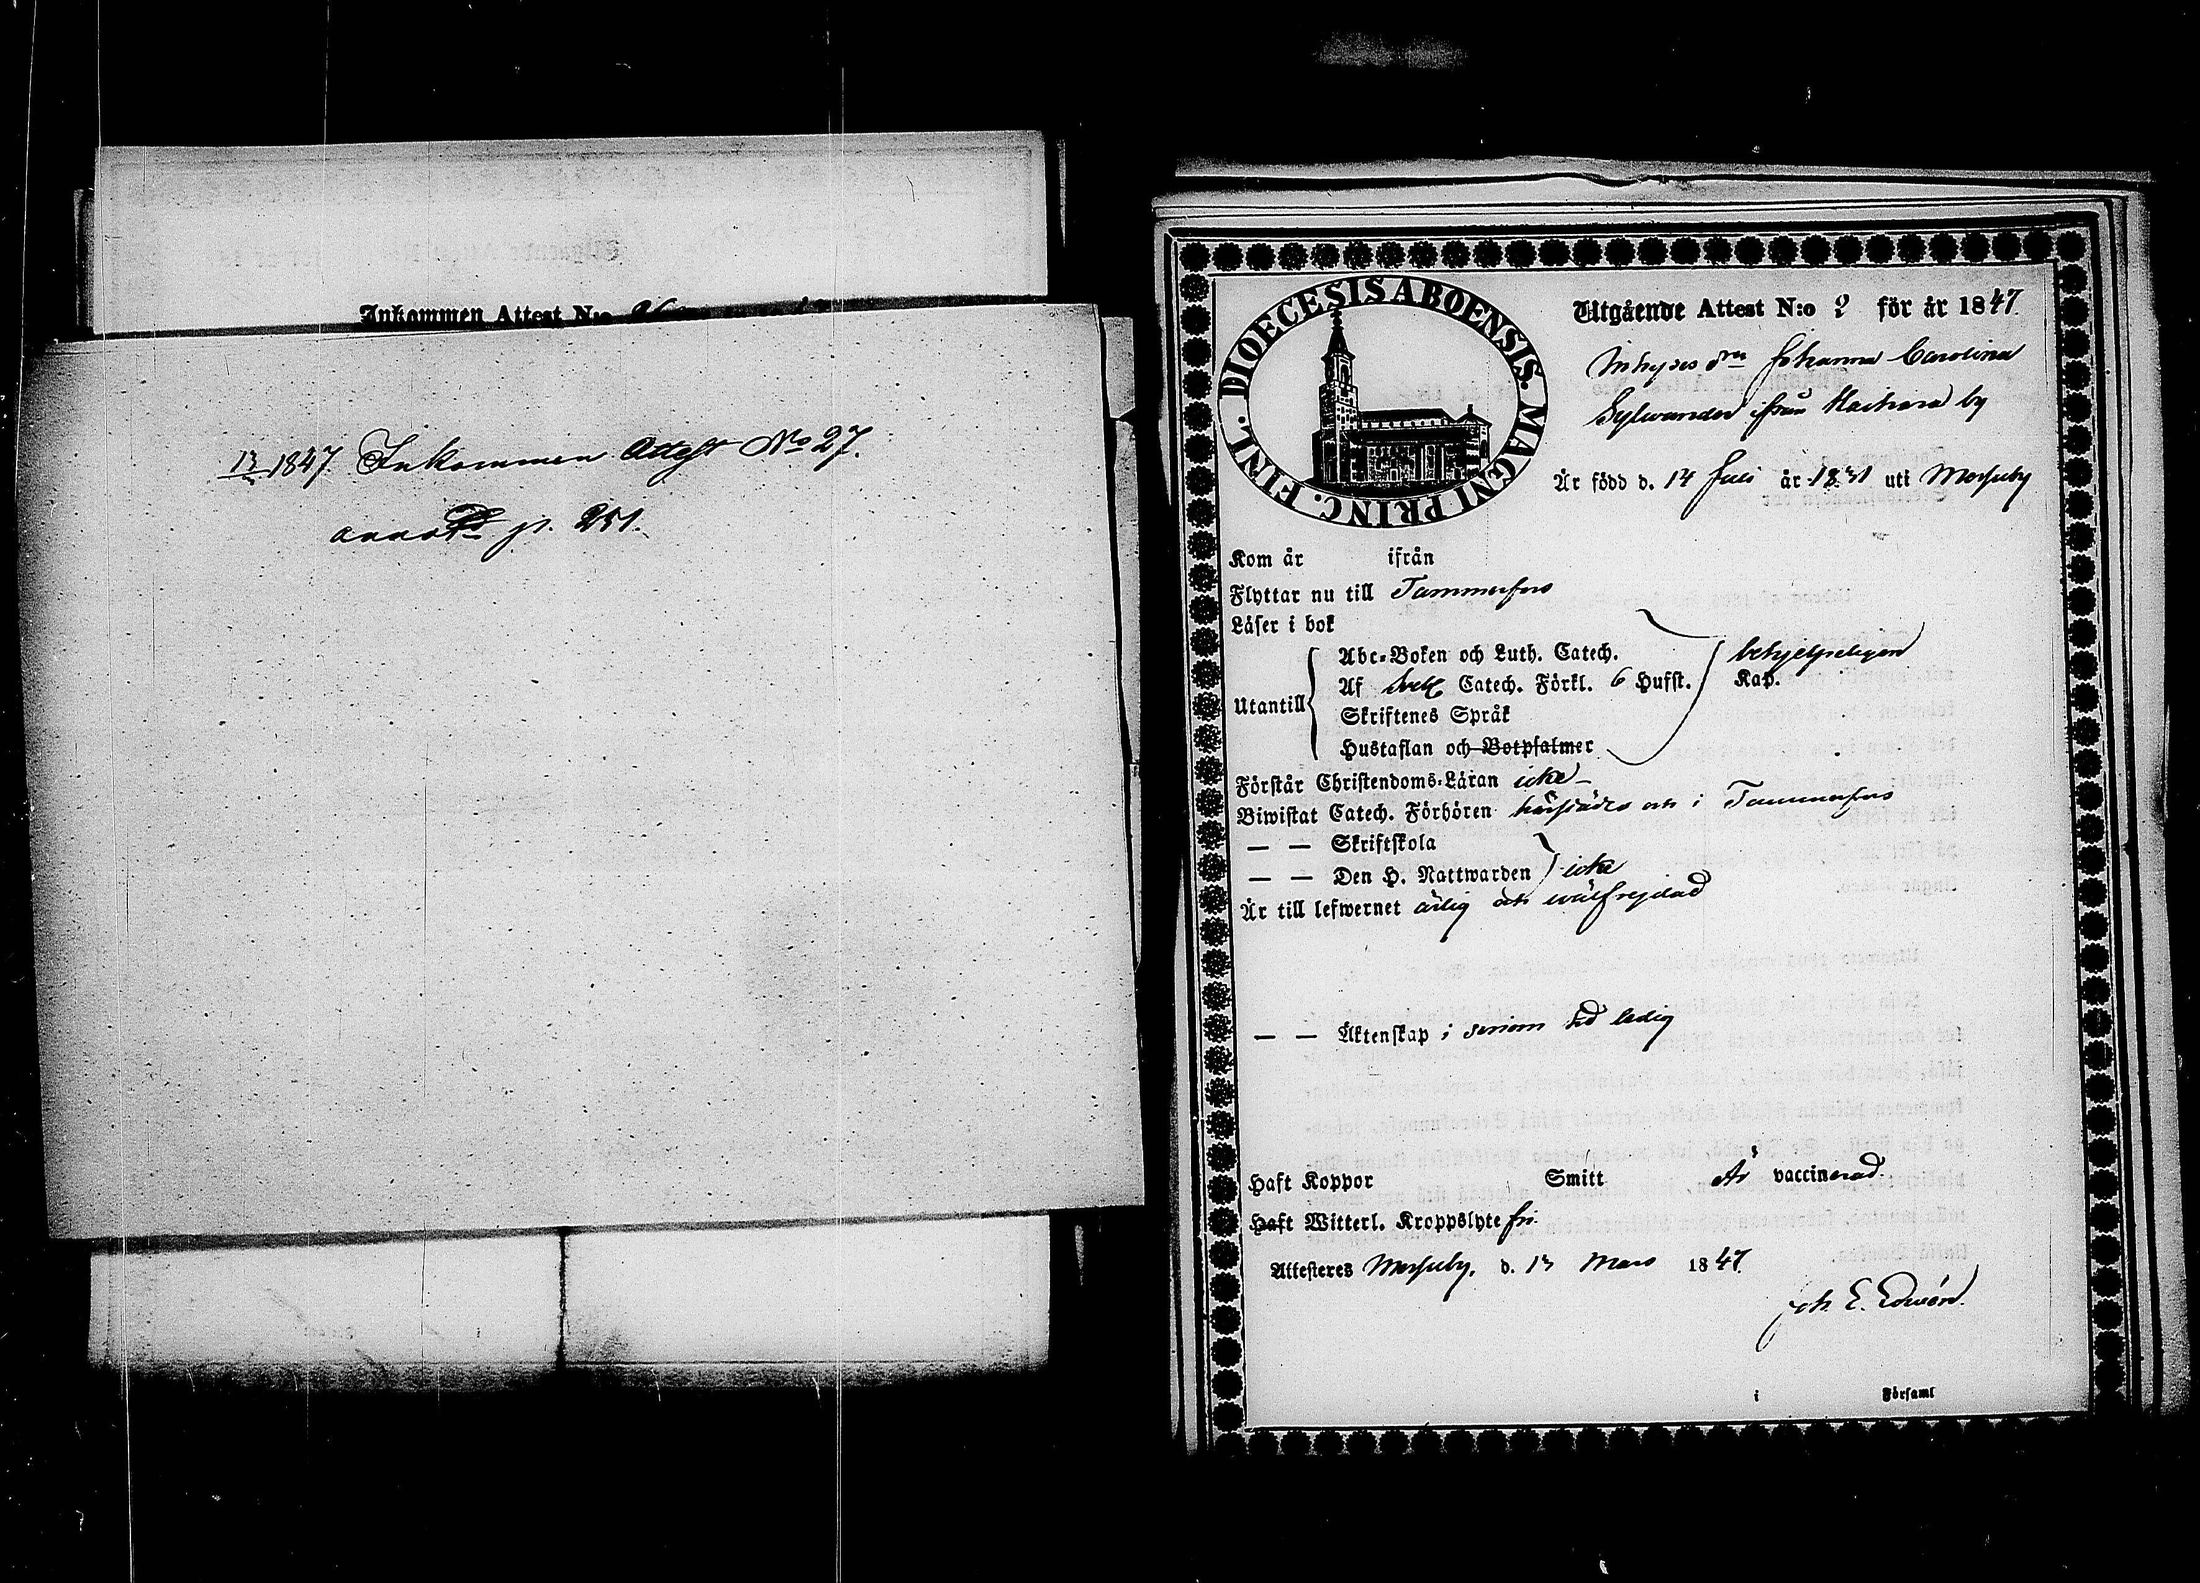 Inkommen Attest N:o 26
13 1847. Inkommen Attest No 27.
annotd p. 251.
DIOECESIS ABOENSIS. MAGNI PRINC. FINL.
Utgående Attest N:o 2 för år 1847.
Inhyses drn Johanna Carolina
Sylwander ifrån Haihara by
Är född d. 14 Juli år 1831 uti Messuby
Kom år ifrån
Flyttar nu till Tammerfors
Läser i bok
Abc-Boken och Luth. Catech. behjelpeligen
Utantill
Af Sveb Catech. Förkl. 6 Hufst. Kap.
Skriftenes Språk
Hustaflan och Botpsalmer
Förstår Christendoms-Läran icke
Biwistat Catech. Förhören härstädes och i Tammerfors
— — Skriftskola
— — Den H. Nattwarden icke
Är till lefwernet ärlig och wälfrejdad
— — Äktenskap i senom tid ledig
Haft Koppor Smitt Är vaccinerad.
Haft Witterl. Kroppslyte fri.
Attesteres Messuby, d. 13 Mars 1847.
Joh. E. Edwén.
i Församl